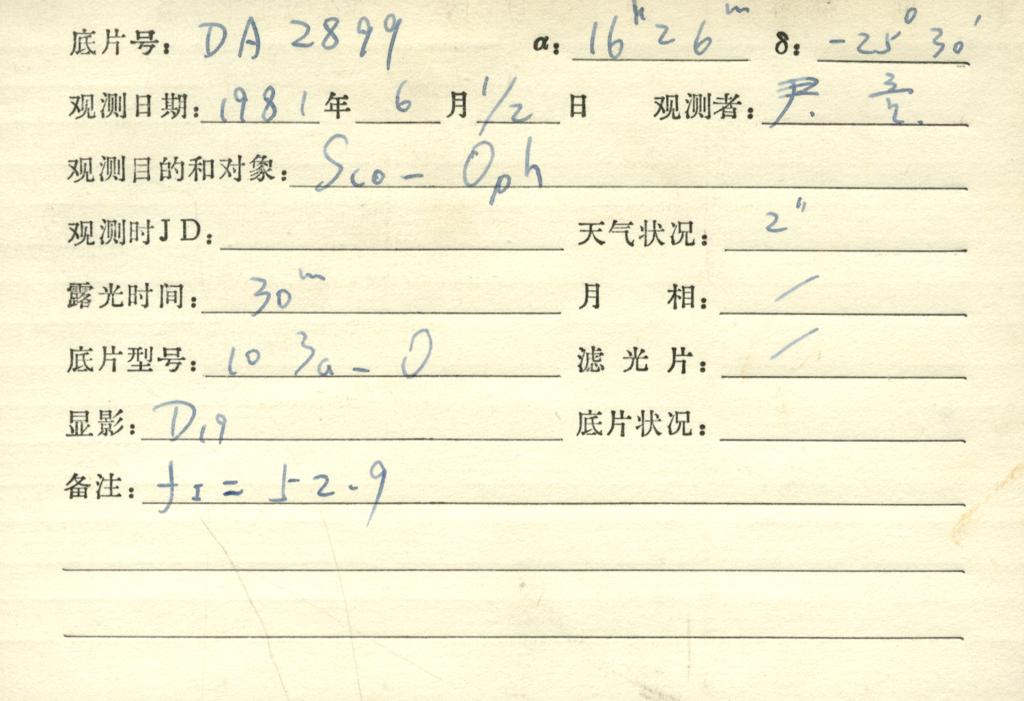 底片号: DA 2899 α: 16ʰ26ᵐ δ: -25°30′
观测日期: 1981年 6月 1/2日 观测者: 尹.
观测目的和对象: Sco - Oph
观测时JD: 天气状况: 2"
露光时间: 30ᵐ 月 相: /
底片型号: 103a-O 滤 光 片: /
显影: D19 底片状况:
备注: fI = 52.9